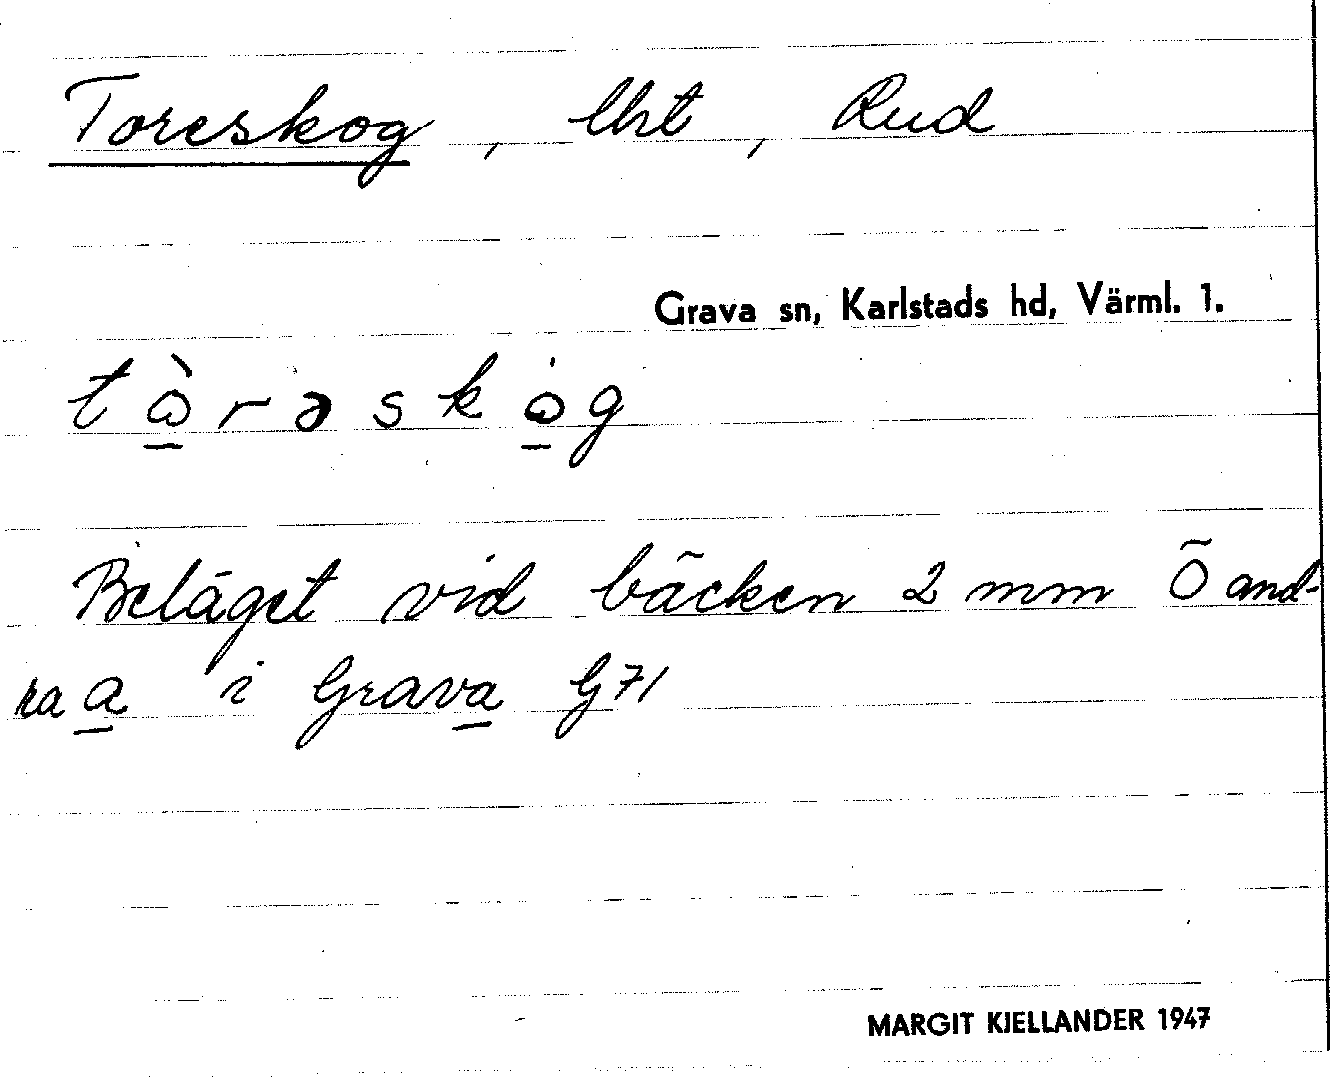 Toreskog, lht, Rud
Grava sn, Karlstads hd, Värml. 1.
tò̱rəskó̱g
Beläget vid bäcken 2 mm Ö and-
ra a̱ i Grava̱ G71
MARGIT KJELLANDER 1947